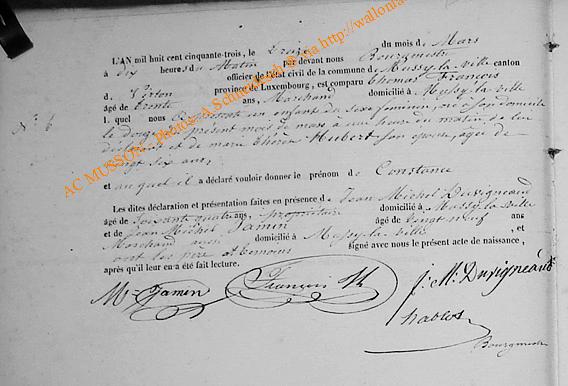 L'AN mil huit cent cinquante-trois, le treize du mois de Mars
à dix heures du Matin par devant nous Bourgmestre
officier de l'état civil de la commune de Mussy la ville canton
d Virton province de Luxembourg, est comparu thomas François
âgé de trente ans, Marchand domicilié à Mussy la ville
N° 6
lequel nous a présenté un enfant du sexe féminin, né à son domicile
le douze du présent mois de mars à une heure du matin, de lui
déclarant et de marie therese Hubert son épouse, âgée de
vingt six ans
et auquel il a déclaré vouloir donner le prénom de Constance
Les dites déclaration et présentation faites en présence de Jean Michel Duvigneaud
âgé de soixante quatre ans, propriétaire domicilié à Mussy la ville
et de Jean Michel Jamin âgé de vingt neuf ans
Marchand aussi domicilié à Mussy la ville, et
ont les père et témoins signé avec nous le présent acte de naissance,
après qu'il leur en a été fait lecture.
M Jamin François Th J. M. Duvigneaud
Bourgmestre
AC MUSSON - Photos A Schne http://wallonia